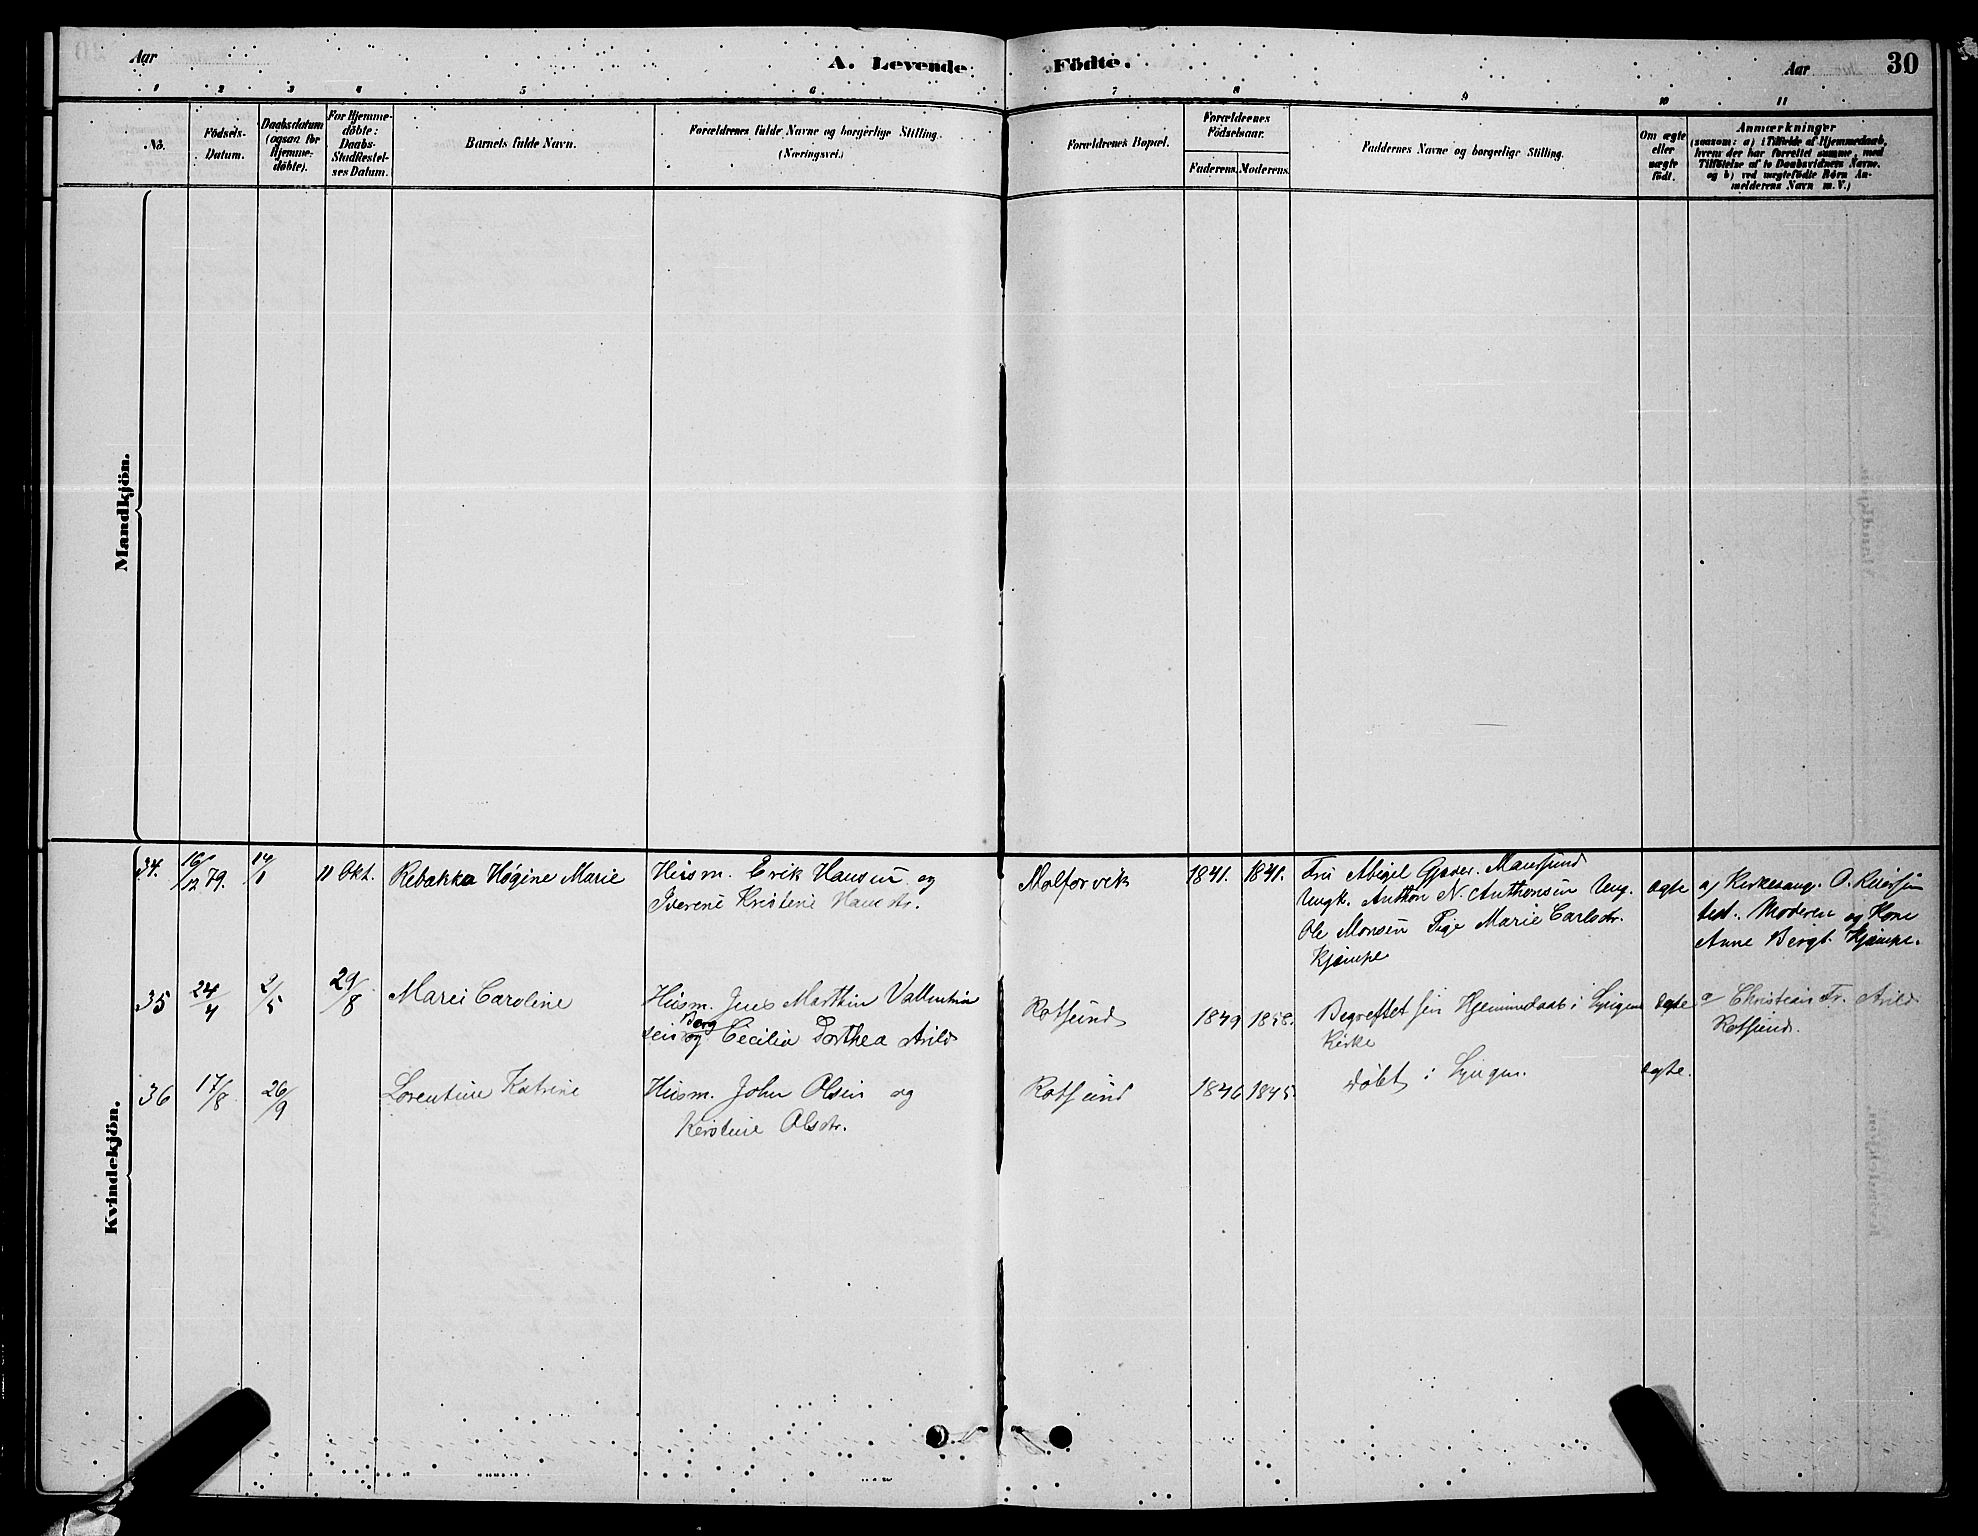 Aar
A. Levende Födte.
Aar
30
1 2 3 4 5 6 7 8 9 10 11
No.
Födsels-
Datum.
Daabsdatum
(ogsaa for
Hjemme-
döbte).
For Hjemme-
döbte:
Daabs-
Stadfæstel-
ses Datum.
Barnets fulde Navn.
Forældrenes fulde Navne og borgerlige Stilling.
(Næringsvei.)
Forældrenes Bopæl.
Forældrenes
Födselsaar.
Faderens. Moderens.
Faddernes Navne og borgerlige Stilling.
Om ægte
eller
uægte
födt.
Anmærkninger
(saasom: a) i Tilfælde af Hjemmedaab,
hvem der har forrettet samme, med
Tilföielse af to Daabsvidners Navne.
og b) ved uægtefödte Börn An-
melderens Navn m. V.)
Mandkjön.
Kvindekjön.
34.
16/12 79.
14/1
11 Okt.
Rebakka Högine Marie
Husm. Erik Hansen og
Iverene Kristene Hansdr.
Malforvik
1841.
1841.
Fru Abigel Gjæver. Maursund
Ungk. Anthon N. Anthonsen Ung.
Ole Monsen Pige Marie Carlsdr.
Kjæmpe
Ægte
a) Kirkesang. O. Reiersen
test. Moderen og Kone
Anne Bergt. Kjæmpe.
35
24/4
2/5
29/8
Marei Caroline
Husm. Jens Marthin Vallentin
sen Berg og Cecilia Dorthea Arild
Rotsund
1849
1858.
Begreftet sin Hjemmedaab i Lyngen
Kirke
Ægte
a/ Christian Fr. Arild
Rotsund.
36
17/8
26/9
Lorentine Katrine
Husm. John Olsen og
Kerstine Olsdr.
Rotsund
1846
1845.
Døbt i Lyngen.
Ægte.